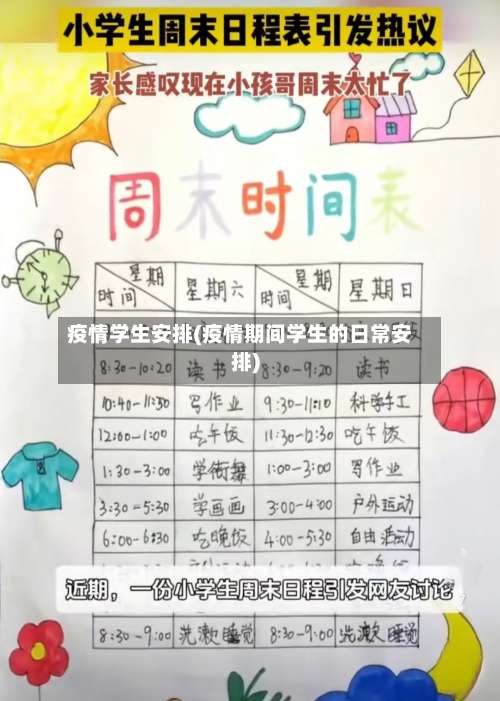 小学生周末日程表引发热议
家长感叹现在小孩哥周末太忙了
周末时间表
星期 时间 星期六 星期 时间 星期日
疫情学生安排(疫情期间学生的日常安
排)
8:30-10:20 读书 8:30-9:20 读书
10:40-11:50 写作业 9:30-11:10 科学手工
12:00-1:00 吃午饭 11:30-12:30 吃午饭
1:30-3:00 学街舞 1:00-3:00 写作业
3:30-5:30 学画画 3:00-4:00 户外运动
6:00-6:30 吃晚饭 4:00-5:30 自由活动
近期，一份小学生周末日程引发网友讨论
8:30-9:00 洗漱睡觉 8:30-9:00 洗漱睡觉